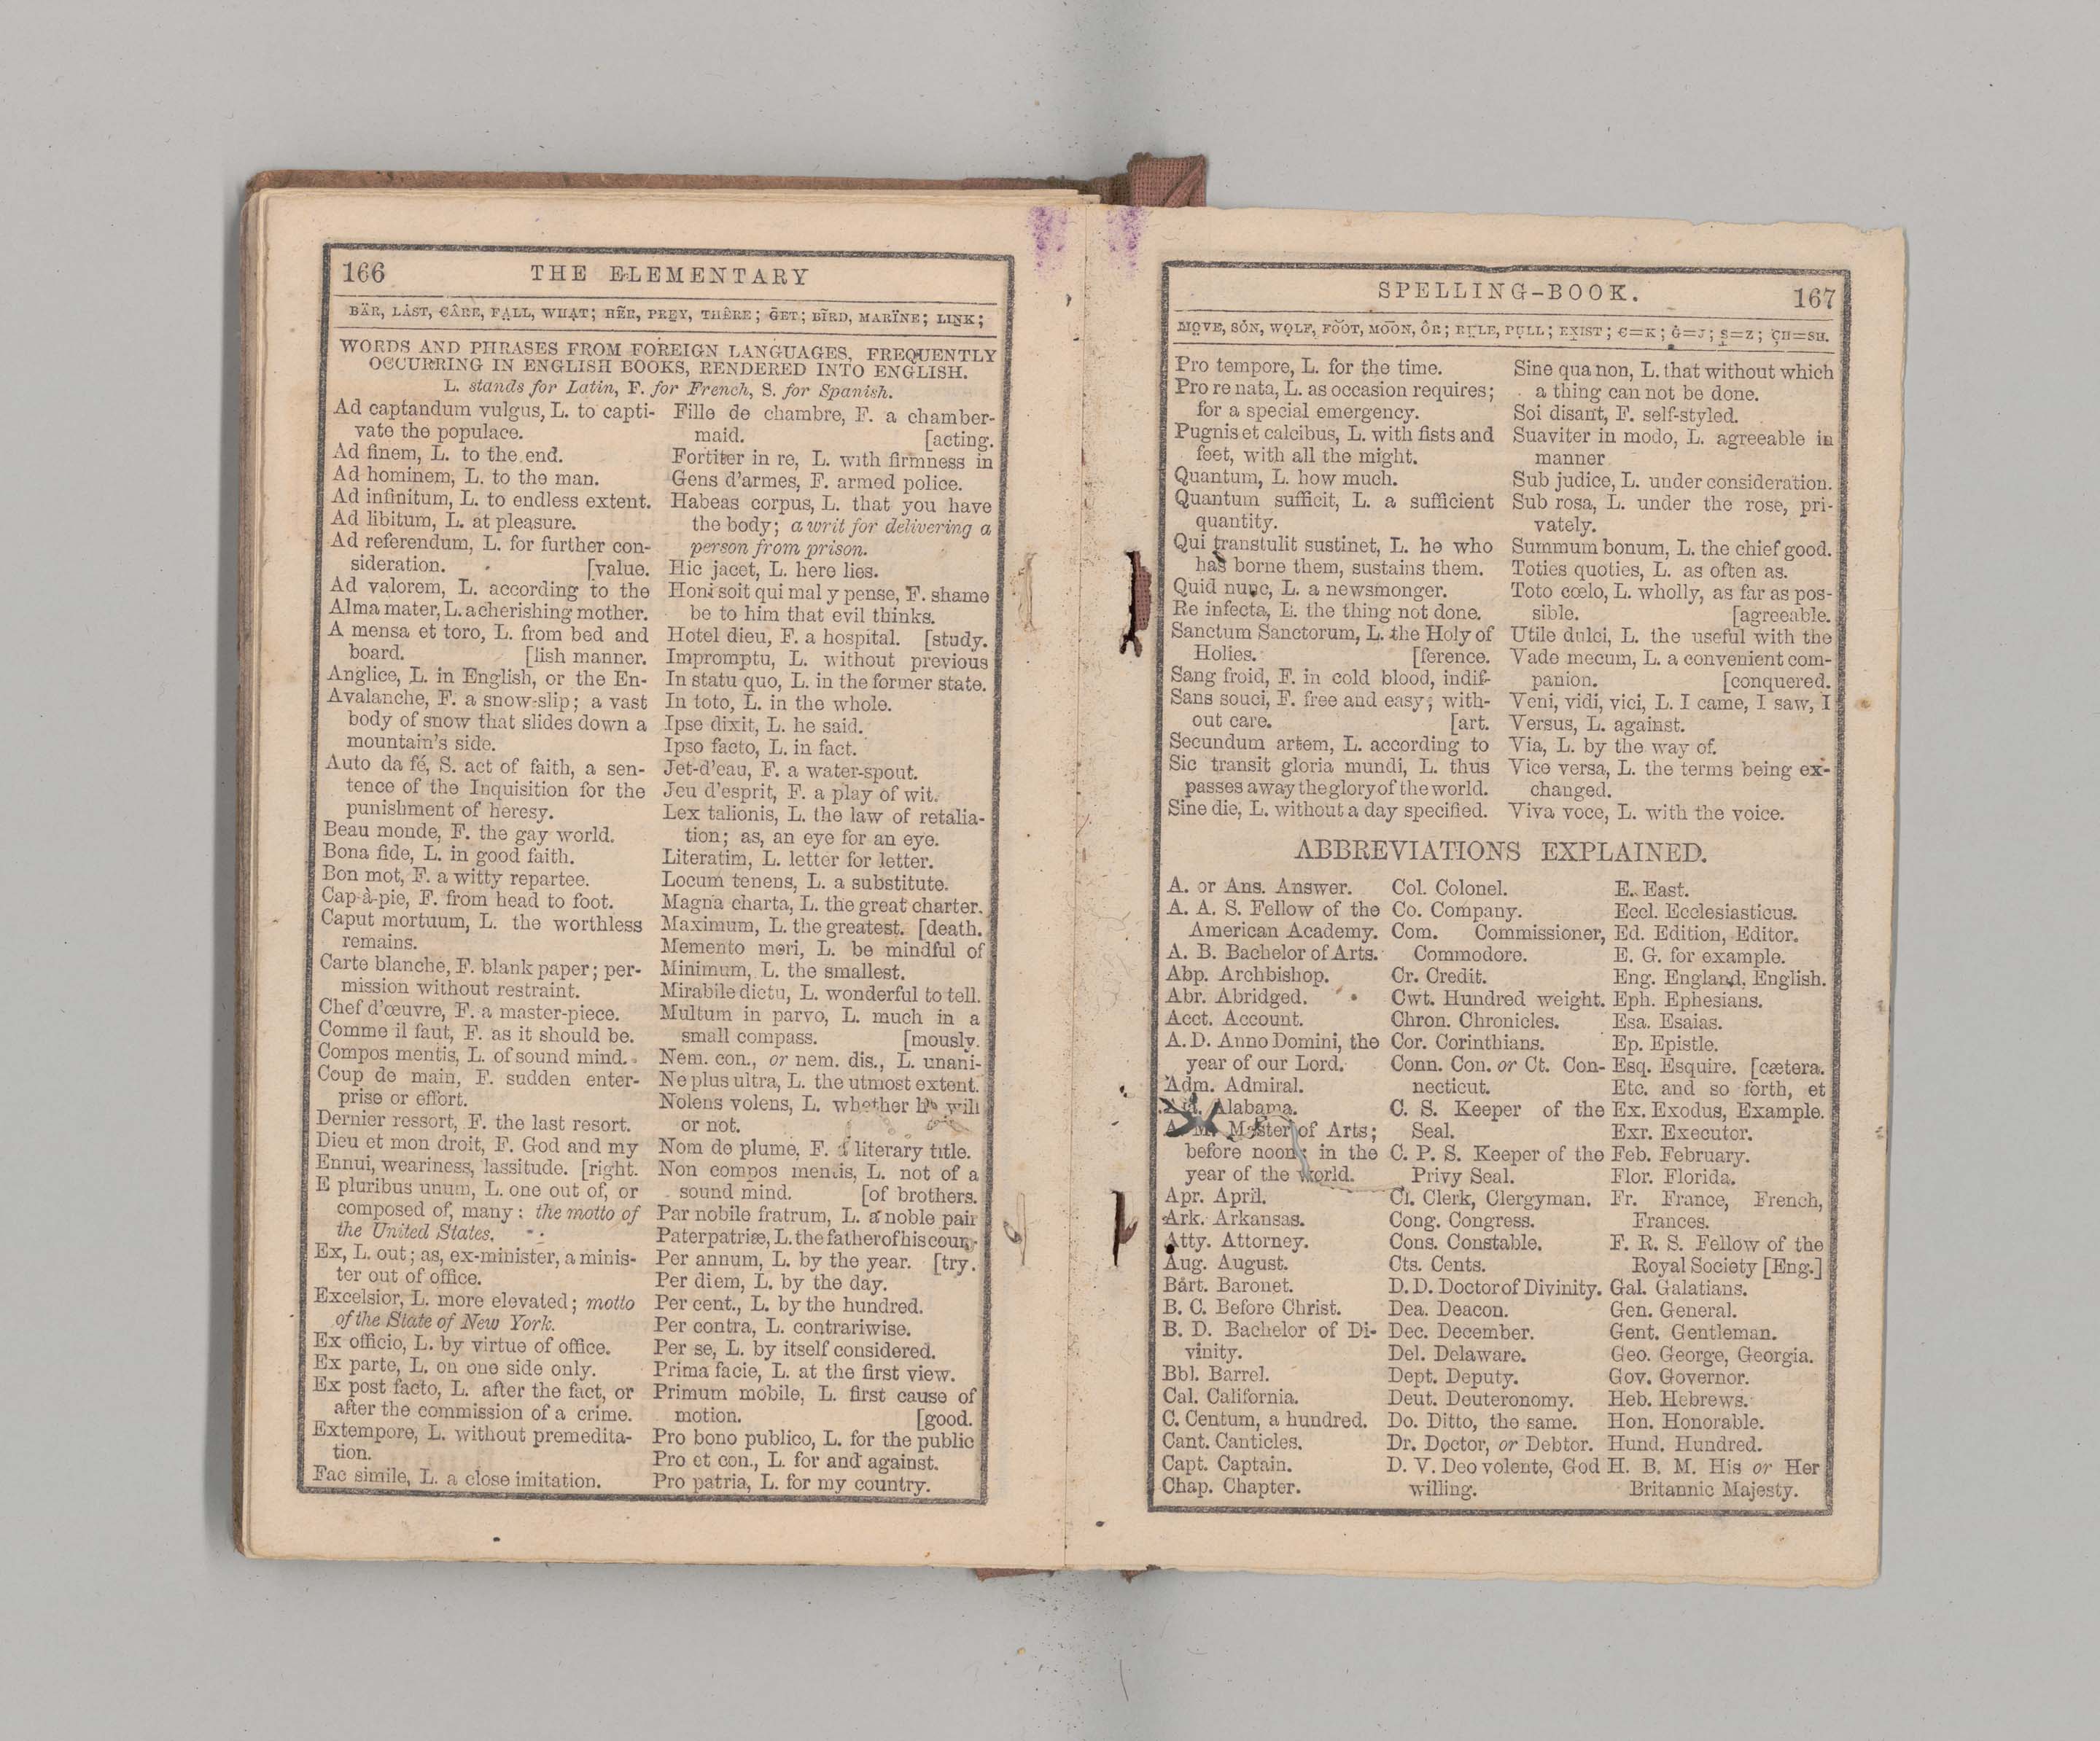 166 THE ELEMENTARY
BÄR, LÅST, CÂRE, FALL, WHAT; HẼR, PREY, THÊRE; ḠET; BĨRD, MARÏNE; LINK;
WORDS AND PHRASES FROM FOREIGN LANGUAGES, FREQUENTLY
OCCURRING IN ENGLISH BOOKS, RENDERED INTO ENGLISH.
L. stands for Latin, F. for French, S. for Spanish.
Ad captandum vulgus, L. to capti-
vate the populace.
Ad finem, L. to the end.
Ad hominem, L. to the man.
Ad infinitum, L. to endless extent.
Ad libitum, L. at pleasure.
Ad referendum, L. for further con-
sideration. [value.
Ad valorem, L. according to the
Alma mater, L. a cherishing mother.
A mensa et toro, L. from bed and
board. [lish manner.
Anglice, L. in English, or the En-
Avalanche, F. a snow-slip; a vast
body of snow that slides down a
mountain's side.
Auto da fé, S. act of faith, a sen-
tence of the Inquisition for the
punishment of heresy.
Beau monde, F. the gay world.
Bona fide, L. in good faith.
Bon mot, F. a witty repartee.
Cap-à-pie, F. from head to foot.
Caput mortuum, L. the worthless
remains.
Carte blanche, F. blank paper; per-
mission without restraint.
Chef d'œuvre, F. a master-piece.
Comme il faut, F. as it should be.
Compos mentis, L. of sound mind.
Coup de main, F. sudden enter-
prise or effort.
Dernier ressort, F. the last resort.
Dieu et mon droit, F. God and my
Ennui, weariness, lassitude. [right.
E pluribus unum, L. one out of, or
composed of, many: the motto of
the United States.
Ex, L. out; as, ex-minister, a minis-
ter out of office.
Excelsior, L. more elevated; motto
of the State of New York.
Ex officio, L. by virtue of office.
Ex parte, L. on one side only.
Ex post facto, L. after the fact, or
after the commission of a crime.
Extempore, L. without premedita-
tion.
Fac simile, L. a close imitation.
Fille de chambre, F. a chamber-
maid. [acting.
Fortiter in re, L. with firmness in
Gens d'armes, F. armed police.
Habeas corpus, L. that you have
the body; a writ for delivering a
person from prison.
Hic jacet, L. here lies.
Honi soit qui mal y pense, F. shame
be to him that evil thinks.
Hotel dieu, F. a hospital. [study.
Impromptu, L. without previous
In statu quo, L. in the former state.
In toto, L. in the whole.
Ipse dixit, L. he said.
Ipso facto, L. in fact.
Jet-d'eau, F. a water-spout.
Jeu d'esprit, F. a play of wit.
Lex talionis, L. the law of retalia-
tion; as, an eye for an eye.
Literatim, L. letter for letter.
Locum tenens, L. a substitute.
Magna charta, L. the great charter.
Maximum, L. the greatest. [death.
Memento mori, L. be mindful of
Minimum, L. the smallest.
Mirabile dictu, L. wonderful to tell.
Multum in parvo, L. much in a
small compass. [mously.
Nem. con., or nem. dis., L. unani-
Ne plus ultra, L. the utmost extent.
Nolens volens, L. whether he will
or not.
Nom de plume, F. a literary title.
Non compos mentis, L. not of a
sound mind. [of brothers.
Par nobile fratrum, L. a noble pair
Pater patriæ, L. the father of his coun-
Per annum, L. by the year. [try.
Per diem, L. by the day.
Per cent., L. by the hundred.
Per contra, L. contrariwise.
Per se, L. by itself considered.
Prima facie, L. at the first view.
Primum mobile, L. first cause of
motion. [good.
Pro bono publico, L. for the public
Pro et con., L. for and against.
Pro patria, L. for my country.
SPELLING-BOOK. 167
MOVE, SÓN, WOLF, FOOT, MOON, ÔR; RULE, PULL; EXIST; C=K; G=J; S=Z; CH=SH.
Pro tempore, L. for the time.
Pro re nata, L. as occasion requires;
for a special emergency.
Pugnis et calcibus, L. with fists and
feet, with all the might.
Quantum, L. how much.
Quantum sufficit, L. a sufficient
quantity.
Qui transtulit sustinet, L. he who
has borne them, sustains them.
Quid nunc, L. a newsmonger.
Re infecta, L. the thing not done.
Sanctum Sanctorum, L. the Holy of
Holies. [ference.
Sang froid, F. in cold blood, indif-
Sans souci, F. free and easy; with-
out care. [art.
Secundum artem, L. according to
Sic transit gloria mundi, L. thus
passes away the glory of the world.
Sine die, L. without a day specified.
Sine qua non, L. that without which
a thing can not be done.
Soi disant, F. self-styled.
Suaviter in modo, L. agreeable in
manner
Sub judice, L. under consideration.
Sub rosa, L. under the rose, pri-
vately.
Summum bonum, L. the chief good.
Toties quoties, L. as often as.
Toto cœlo, L. wholly, as far as pos-
sible. [agreeable.
Utile dulci, L. the useful with the
Vade mecum, L. a convenient com-
panion. [conquered.
Veni, vidi, vici, L. I came, I saw, I
Versus, L. against.
Via, L. by the way of.
Vice versa, L. the terms being ex-
changed.
Viva voce, L. with the voice.
ABBREVIATIONS EXPLAINED.
A. or Ans. Answer.
A. A. S. Fellow of the
American Academy.
A. B. Bachelor of Arts.
Abp. Archbishop.
Abr. Abridged.
Acct. Account.
A. D. Anno Domini, the
year of our Lord.
Adm. Admiral.
Alabama.
A. M. Master of Arts;
before noon; in the
year of the world.
Apr. April.
Ark. Arkansas.
Atty. Attorney.
Aug. August.
Bart. Baronet.
B. C. Before Christ.
B. D. Bachelor of Di-
vinity.
Bbl. Barrel.
Cal. California.
C. Centum, a hundred.
Cant. Canticles.
Capt. Captain.
Chap. Chapter.
Col. Colonel.
Co. Company.
Com. Commissioner,
Commodore.
Cr. Credit.
Cwt. Hundred weight.
Chron. Chronicles.
Cor. Corinthians.
Conn. Con. or Ct. Con-
necticut.
C. S. Keeper of the
Seal.
C. P. S. Keeper of the
Privy Seal.
Cl. Clerk, Clergyman.
Cong. Congress.
Cons. Constable.
Cts. Cents.
D. D. Doctor of Divinity.
Dea. Deacon.
Dec. December.
Del. Delaware.
Dept. Deputy.
Deut. Deuteronomy.
Do. Ditto, the same.
Dr. Doctor, or Debtor.
D. V. Deo volente, God
willing.
E. East.
Eccl. Ecclesiasticus.
Ed. Edition, Editor.
E. G. for example.
Eng. England, English.
Eph. Ephesians.
Esa. Esaias.
Ep. Epistle.
Esq. Esquire. [cætera.
Etc. and so forth, et
Ex. Exodus, Example.
Exr. Executor.
Feb. February.
Flor. Florida.
Fr. France, French,
Frances.
F. R. S. Fellow of the
Royal Society [Eng.]
Gal. Galatians.
Gen. General.
Gent. Gentleman.
Geo. George, Georgia.
Gov. Governor.
Heb. Hebrews.
Hon. Honorable.
Hund. Hundred.
H. B. M. His or Her
Britannic Majesty.